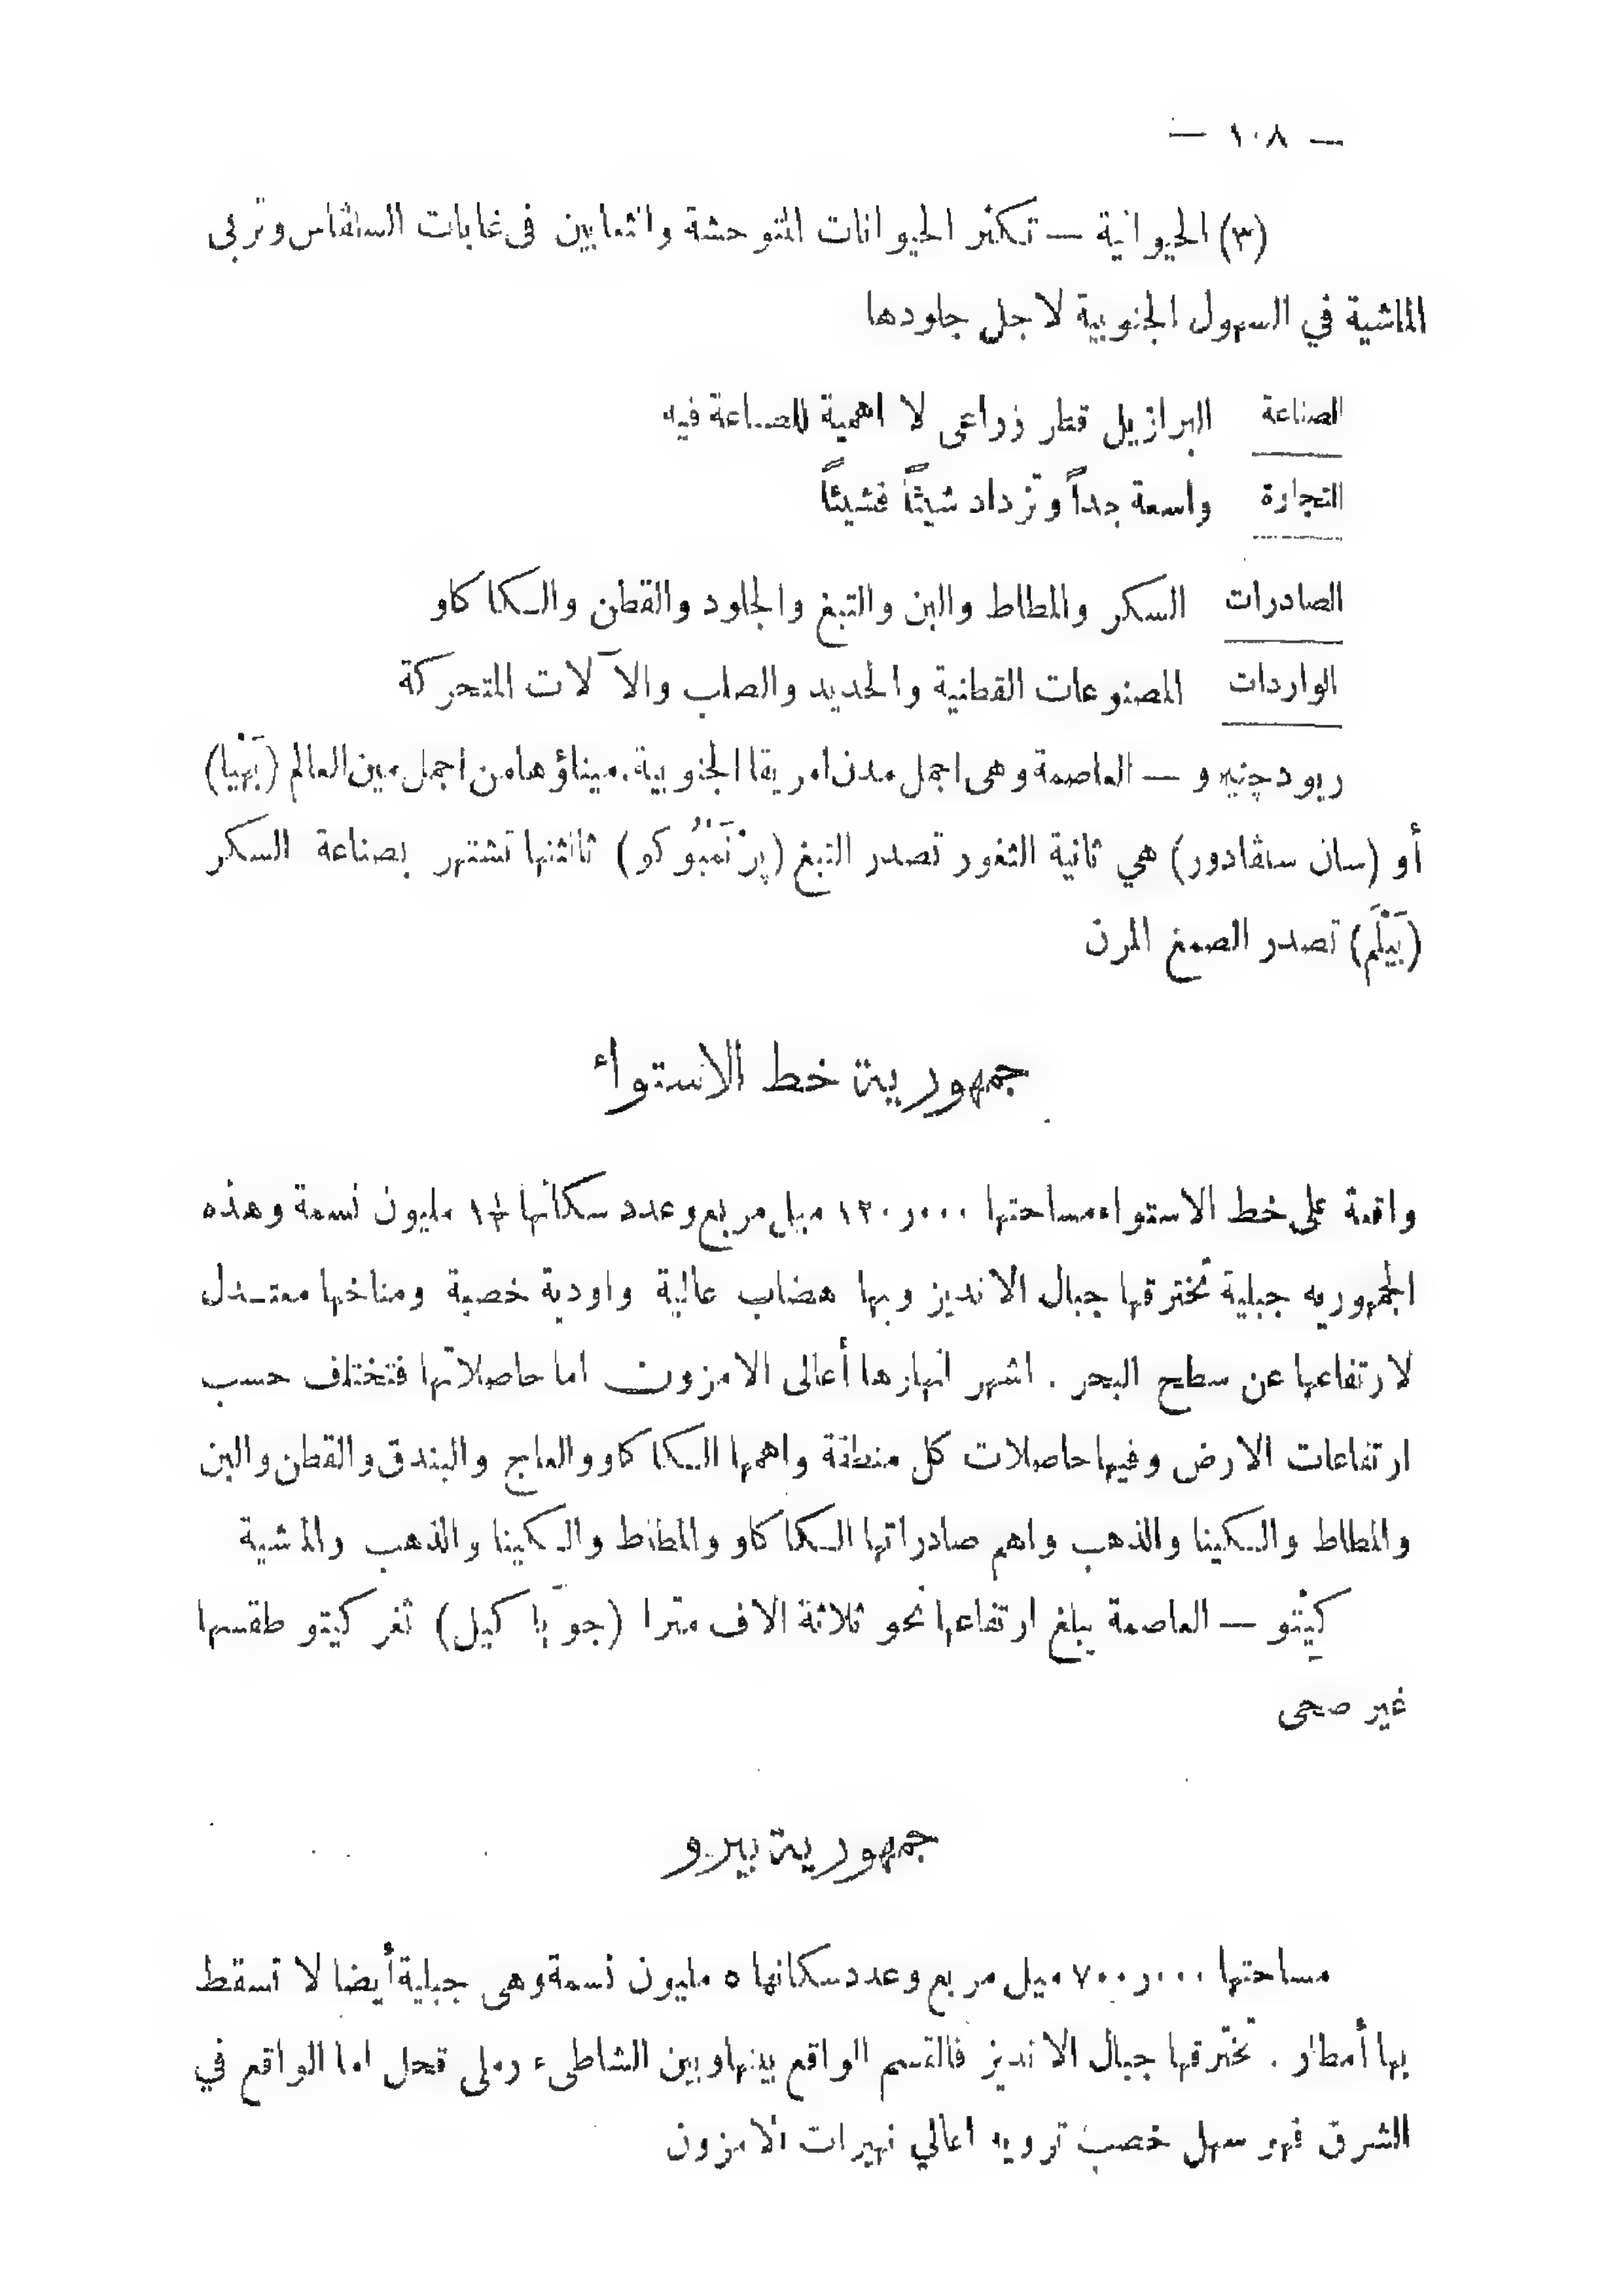 — ١٠٨ —
(٣) الحيوانية — تكثر الحيوانات المتوحشة والثعابين فى غابات السلڤاس وتربى
الماشية في السهول الجنوبية لاجل جلودها
الصناعة البرازيل قطر زراعى لا اهمية للصناعة فيه
التجارة واسعة جداً وتزداد شيئاً فشيئاً
الصادرات السكر والمطاط والبن والتبغ والجلود والقطن والكاكاو
الواردات المصنوعات القطنية والحديد والصلب والآلات المتحركة
ريودچنيرو — العاصمة وهى اجمل مدن امريقا الجنوبية. ميناؤها من اجمل مين العالم (بَهْيا)
أو (سان سلڤادور) هي ثانية الثغور تصدر التبغ (پرْنَمْبُوكو) ثالثتها تشتهر بصناعة السكر
(بَيْلَم) تصدر الصمغ المرن
جمهورية خط الاستواء
واقعة على خط الاستواء مساحتها ١٢٠٫٠٠٠ ميل مربع وعدد سكانها مليون نسمة وهذه
الجمهوريه جبلية تخترقها جبال الانديز وبها هضاب عالية واودية خصبة ومناخها معتدل
لارتفاعها عن سطح البحر . اشهر انهارها أعالى الامزون اما حاصلاتها فتختلف حسب
ارتفاعات الارض وفيها حاصلات كل منطقة واهمها الكاكاو والعاج والبندق والقطن والبن
والمطاط والكينا والذهب واهم صادراتها الكاكاو والمطاط والكينا والذهب والماشية
كِيْتو — العاصمة يبلغ ارتفاعها نحو ثلاثة الاف مترا (جوَيا كيل) ثغر كيتو طقسها
غير صحى
جمهورية بيرو
مساحتها ٧٠٠٫٠٠٠ ميل مربع وعدد سكانها ٥ مليون نسمة وهى جبلية أيضا لا تسقط
بها أمطار . تخترقها جبال الانديز فالقسم الواقع بينها وبين الشاطىء رملى قحل اما الواقع في
الشرق فهو سهل خصب ترويه اعالي نهيرات الامزون